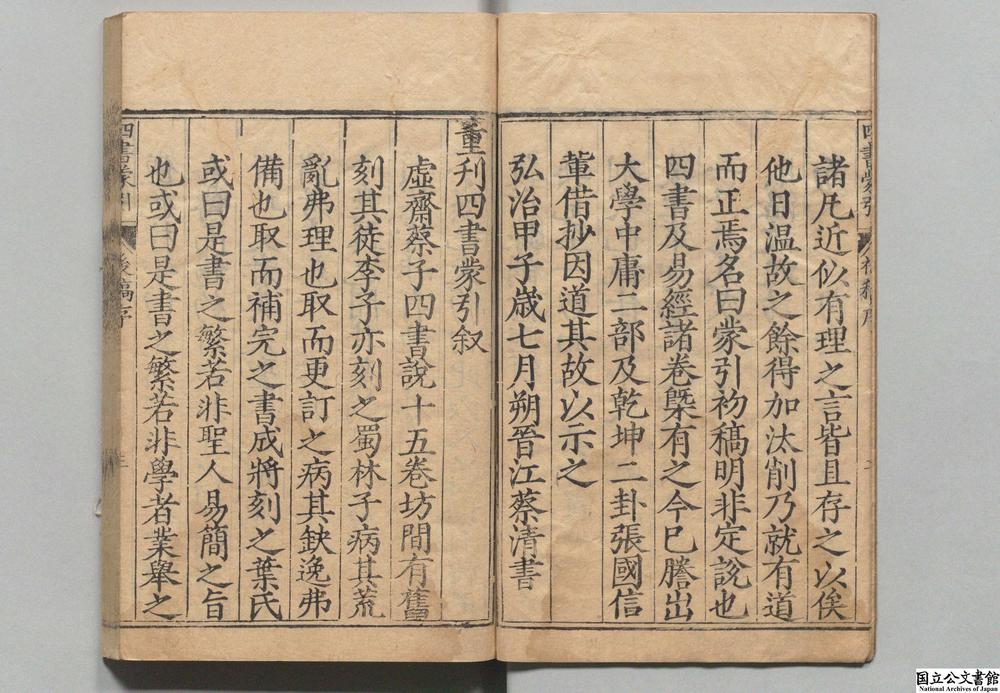 諸凡近似有理之言皆且存之以俟
他日温故之餘得加汰削乃就有道
而正焉名曰蒙引初稿明非定說也
四書及易經諸卷槩有之今已謄出
大學中庸二部及乾坤二卦張國信
軰借抄因道其故以示之
弘治甲子歳七月朔晉江蔡清書
重刊四書蒙引叙
虛齋蔡子四書說十五卷坊間有舊
刻其徒李子亦刻之蜀林子病其荒
亂弗理也取而更訂之病其缺逸弗
備也取而補完之書成將刻之葉氏
或曰是書之繁若非聖人易簡之旨
也或曰是書之繁若非學者業舉之
四書蒙引
序
国立公文書館
National Archives of Japan